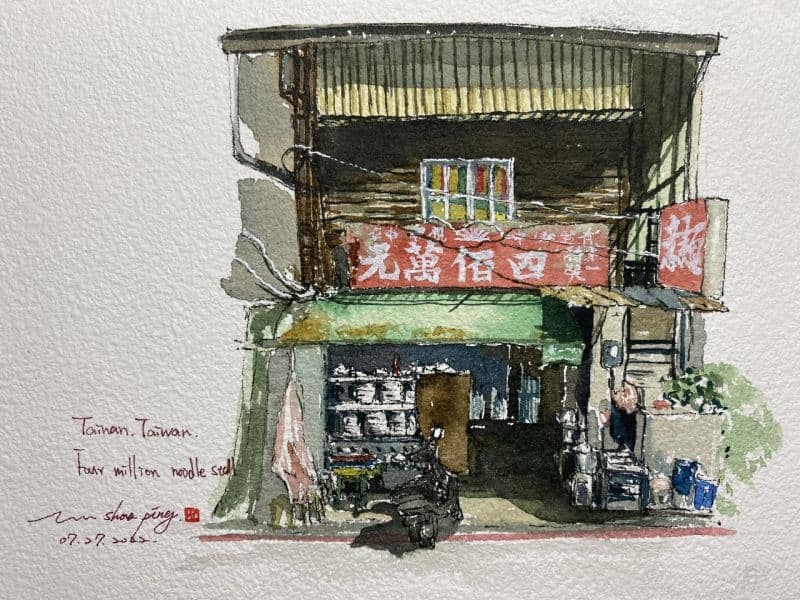 四佰萬元
麵
Tainan. Taiwan.
Four million noodle stall
shao ping.
07.27.2022.